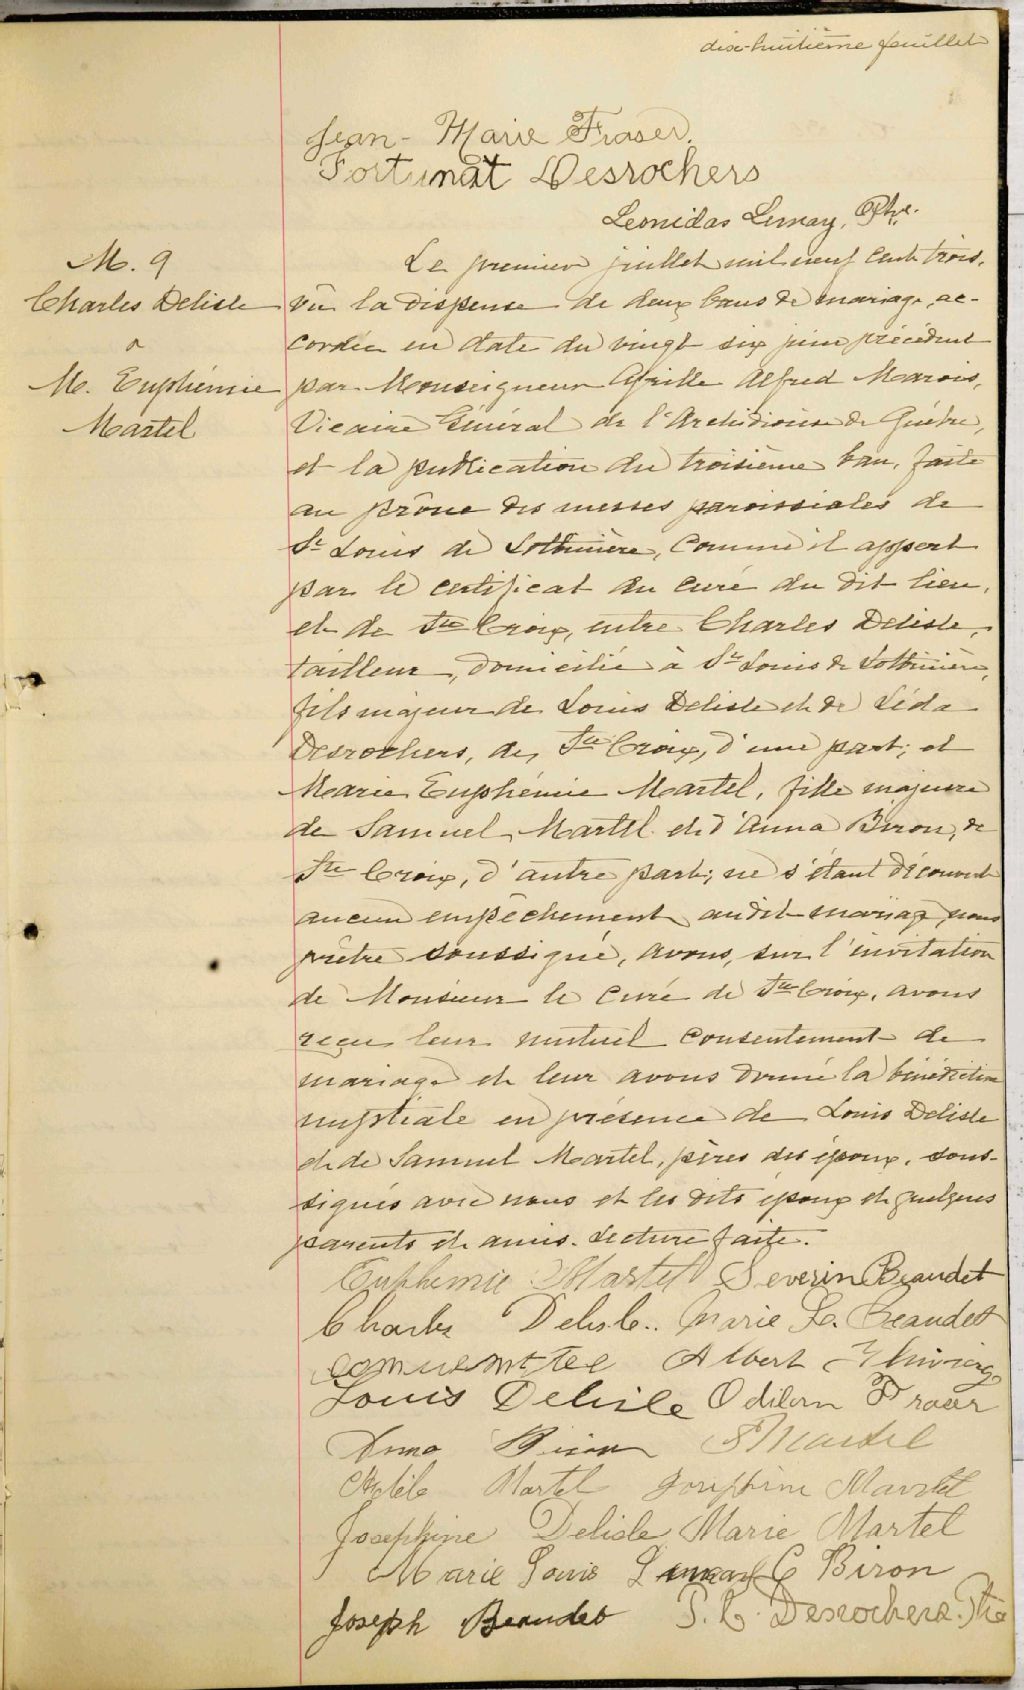 dix-huitième feuillet
Jean-Marie Fraser.
Fortunat Desrochers
Leonidas Lemay, Ptre.
M. 9
Charles Delisle
&
M. Euphémie
Martel
Le premier juillet mil neuf cent trois,
vû la dispense de deux bans de mariage, ac-
cordée en date du vingt six juin précédent
par Monseigneur Cyrille Alfred Marois,
Vicaire Général de l'Archidiocèse de Québec,
et la publication du troisième ban, faite
au prône des messes paroissiales de
St Louis de Lotbinière, comme il appert
par le certificat du curé du dit lieu,
et de Ste Croix, entre Charles Delisle,
tailleur, domicilié à St Louis de Lotbinière,
fils majeur de Louis Delisle et de Léda
Desrochers, de, Ste Croix, d'une part; et
Marie Euphémie Martel, fille majeure
de Samuel Martel et d'Anna Biron, de
Ste Croix, d'autre part; ne s'étant découvert
aucun empêchement audit mariage, nous
prêtre soussigné, avons, sur l'invitation
de Monsieur le curé de Ste Croix, avons
reçu leur mutuel consentement de
mariage et leur avons donné la bénédiction
nuptiale en présence de Louis Delisle
et de Samuel Martel, pères des époux, sous-
signés avec nous et les dits époux et quelques
parents et amis. Lecture faite.
Euphemie Martel Severin Beaudet
Charles Delisle. Marie L. Beaudet
Albert Thivierge
Louis Delisle Odilon Fraser
Anna Biron S Martel
Adèle Martel Josephine Martel
Josephine Delisle Marie Martel
Marie Louis Lemay C Biron
Joseph Beaudet P. C. Desrochers. Ptre